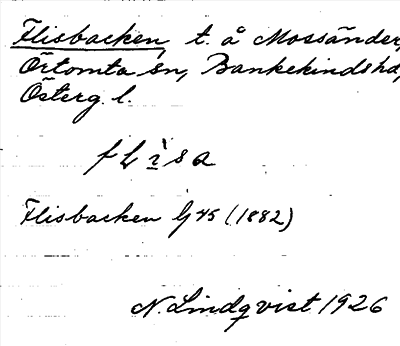 Flisbacken t. å Mossänder,
Örtomta sn, Bankekindshd,
Österg. l.
flisa
Flisbacken Gj 45 (1882)
N. Lindqvist 1926